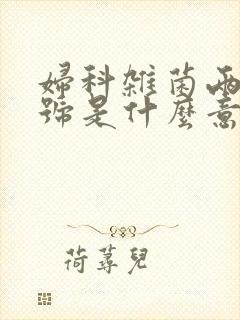 婦科雜菌兩
號是什麼意
荷蕁兒